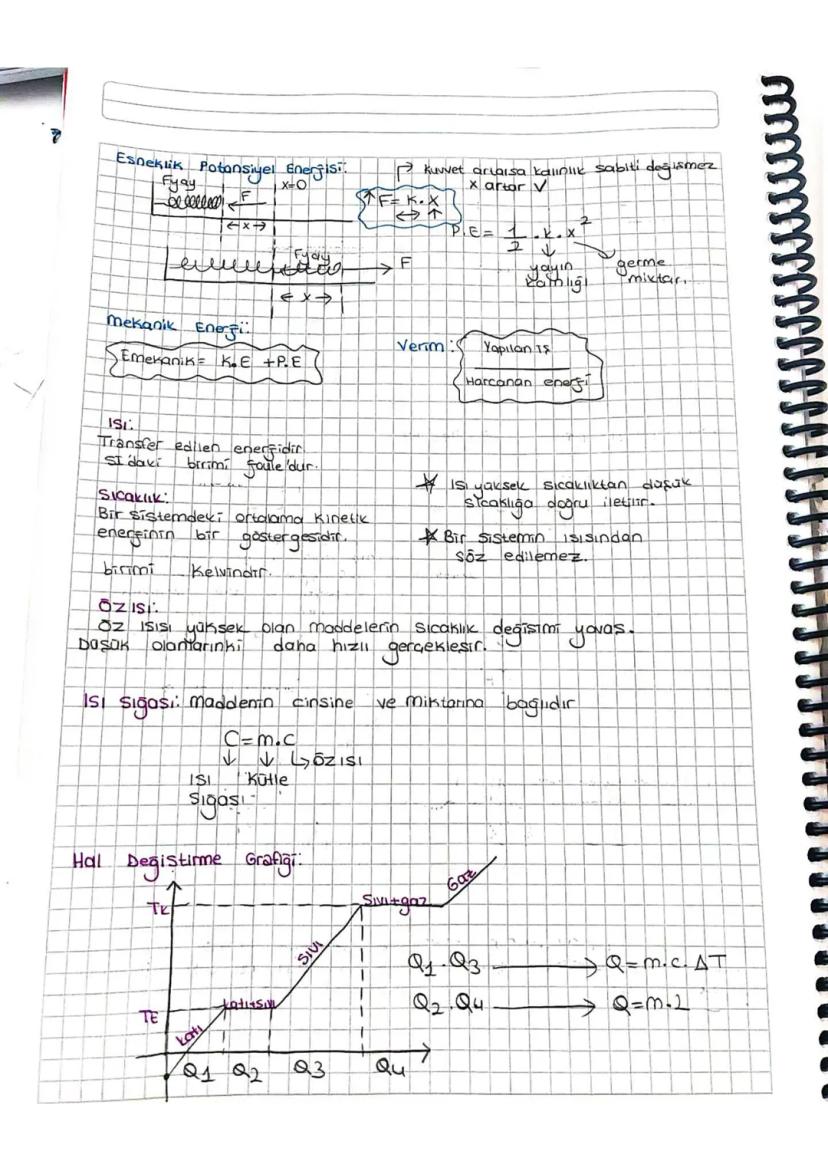 Esneklik Potansiyel Enerjisi:
→ Kuvvet artarsa kalınlık sabiti değişmez
x artar √
Fyay
F
x=0
← x →
↑F = k.x
↔ ↑
P.E = 1/2 . k . x²
yayın kalınlığı
germe miktarı
Fyay
F
← x →
Mekanik Enerji:
Emekanik = K.E + P.E
Verim:
Yapılan iş
Harcanan enerji
ISI:
Transfer edilen enerjidir.
SI'daki birimi joule'dur.
Sıcaklık:
Bir sistemdeki ortalama kinetik
enerjinin bir göstergesidir.
birimi Kelvindir.
* Isı yüksek sıcaklıktan düşük
sıcaklığa doğru iletilir.
* Bir sistemin ısısından
söz edilemez.
ÖZ ISI:
Öz ısısı yüksek olan maddelerin sıcaklık değişimi yavaş.
Düşük olanlarınki daha hızlı gerçekleşir.
Isı sığası: maddenin cinsine ve miktarına bağlıdır
C = m.c
↓ ↓ ↳ öz ısı
ısı kütle
sığası
Hal Değiştirme Grafiği:
TK
Sıvı+gaz
Gaz
sıvı
TE
katı+sıvı
katı
Q1 Q2 Q3 Q4
Q1 . Q3 → Q = m.c.ΔT
Q2 . Q4 → Q = m.L